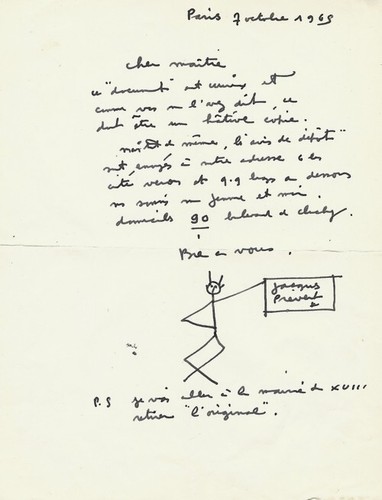 Paris 7 octobre 1965
cher maître
ce "document" est curieux et
comme vous me l'avez dit, ce
doit être une hâtive copie.
de même, "l'avis de dépôt"
à notre adresse 6 bis
cité véron et
ma femme et moi
domiciliés 90 bulevard de clichy.
Bien à vous.
Jacques
Prévert
P.S je vais aller à la mairie du XVIII
retirer "l'original".